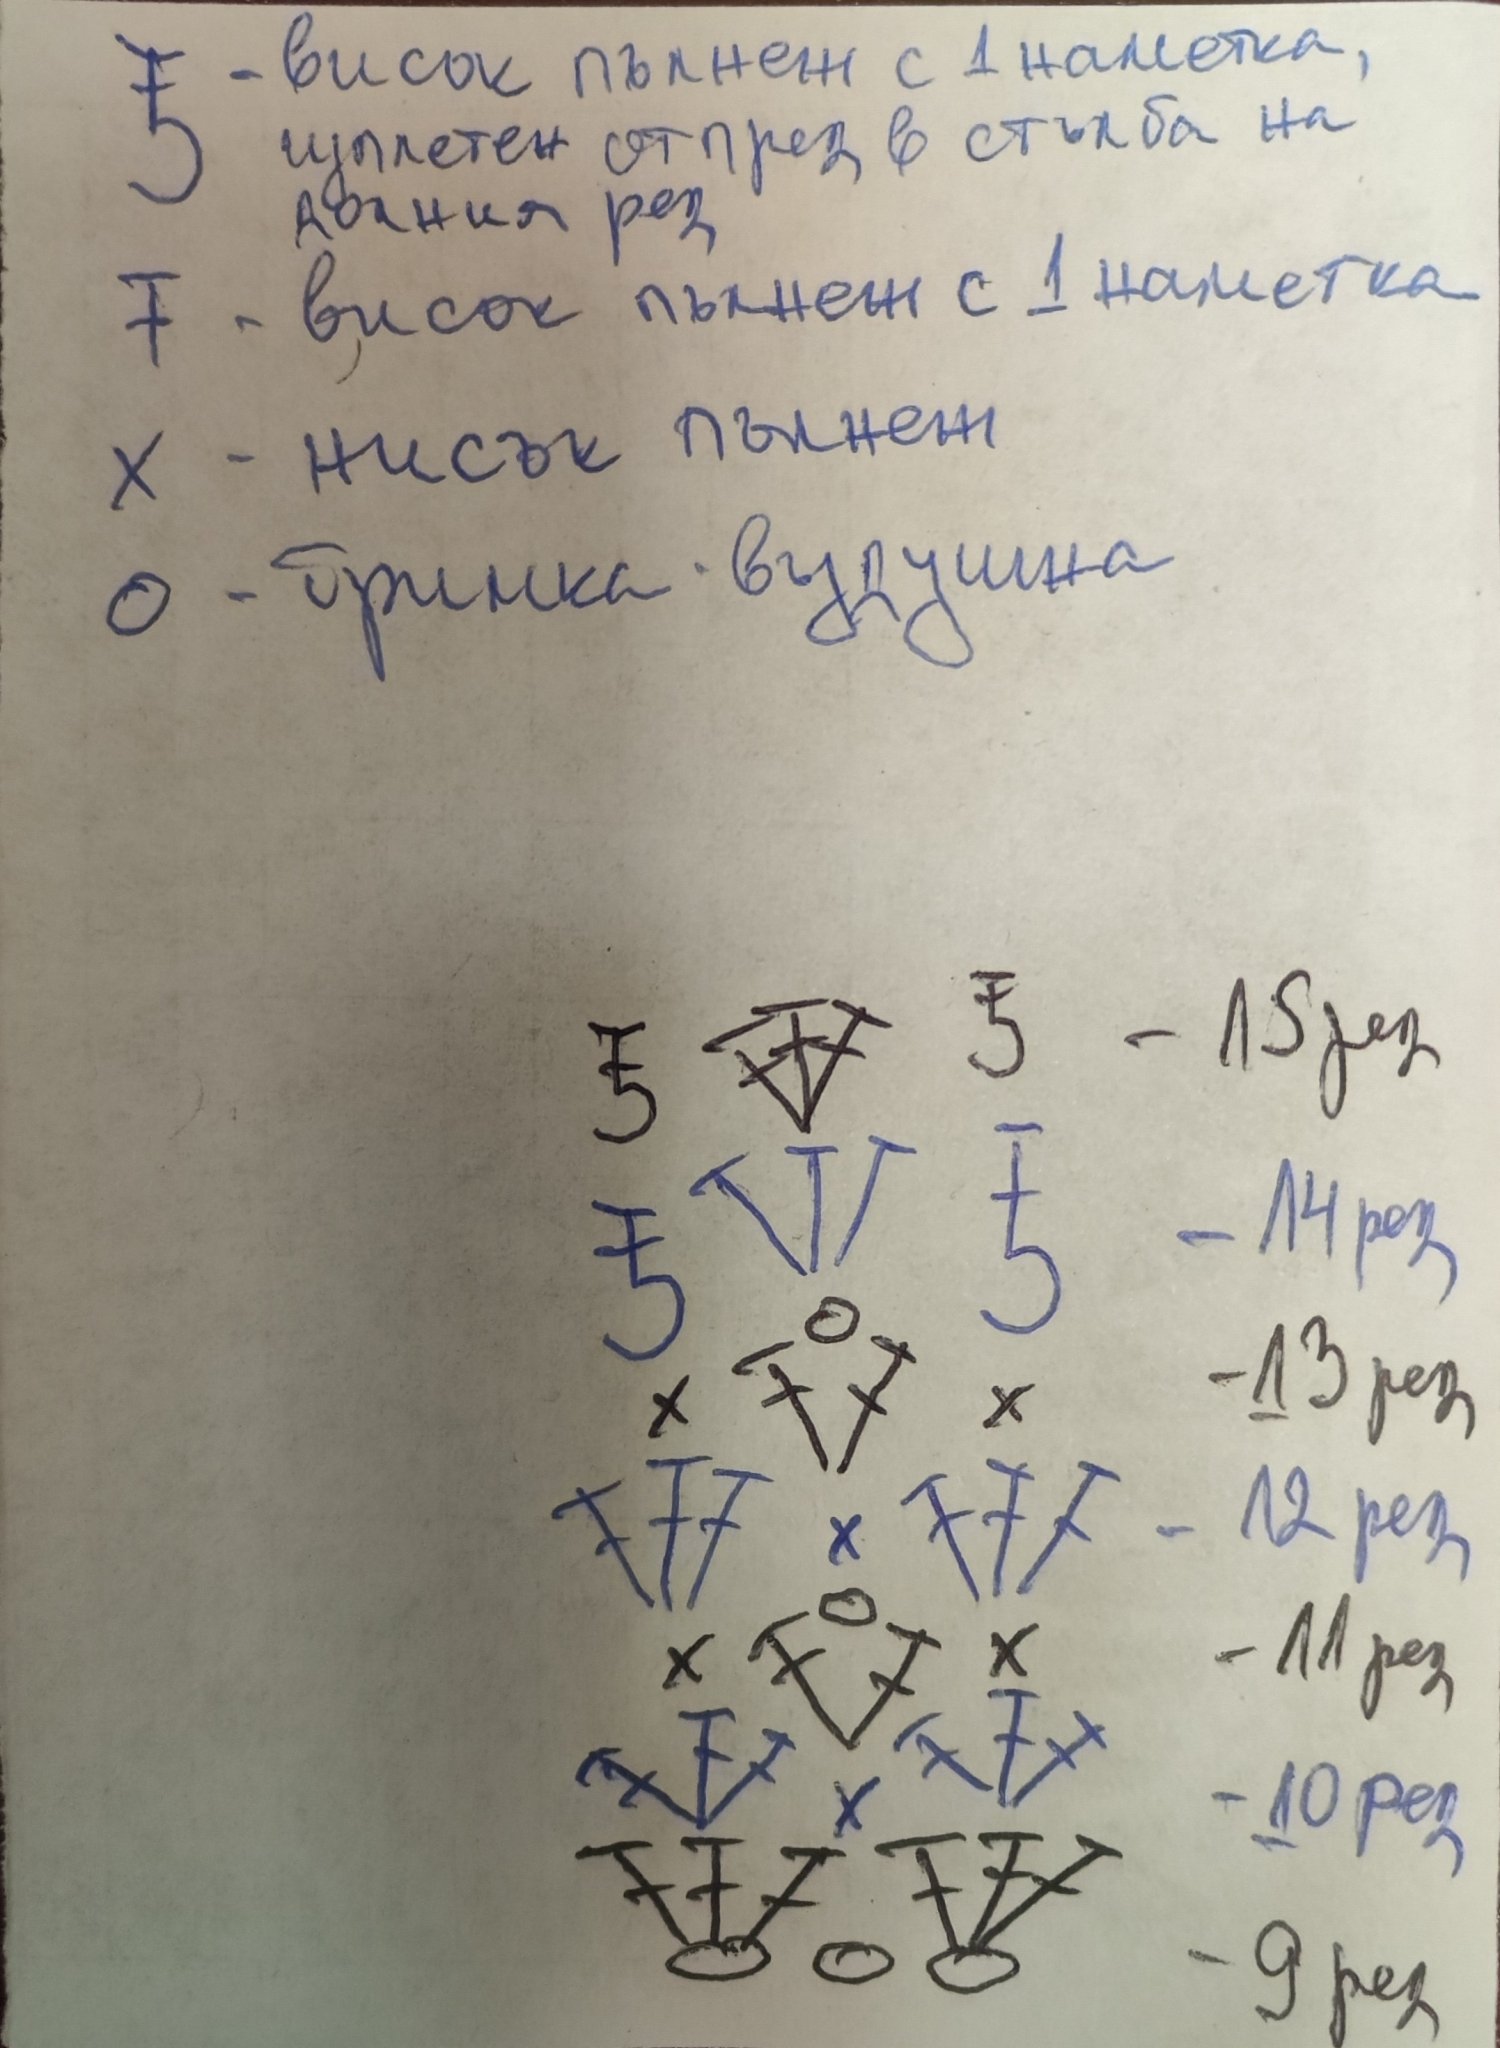 - висок пълнеж с 1 наметка,
изплетен отпрез в стълба на
долния рез
- висок пълнеж с 1 наметка
x - нисък пълнеж
o - бримка въздушна
- 15 рез
- 14 рез
x x - 13 рез
x - 12 рез
x x - 11 рез
x - 10 рез
- 9 рез